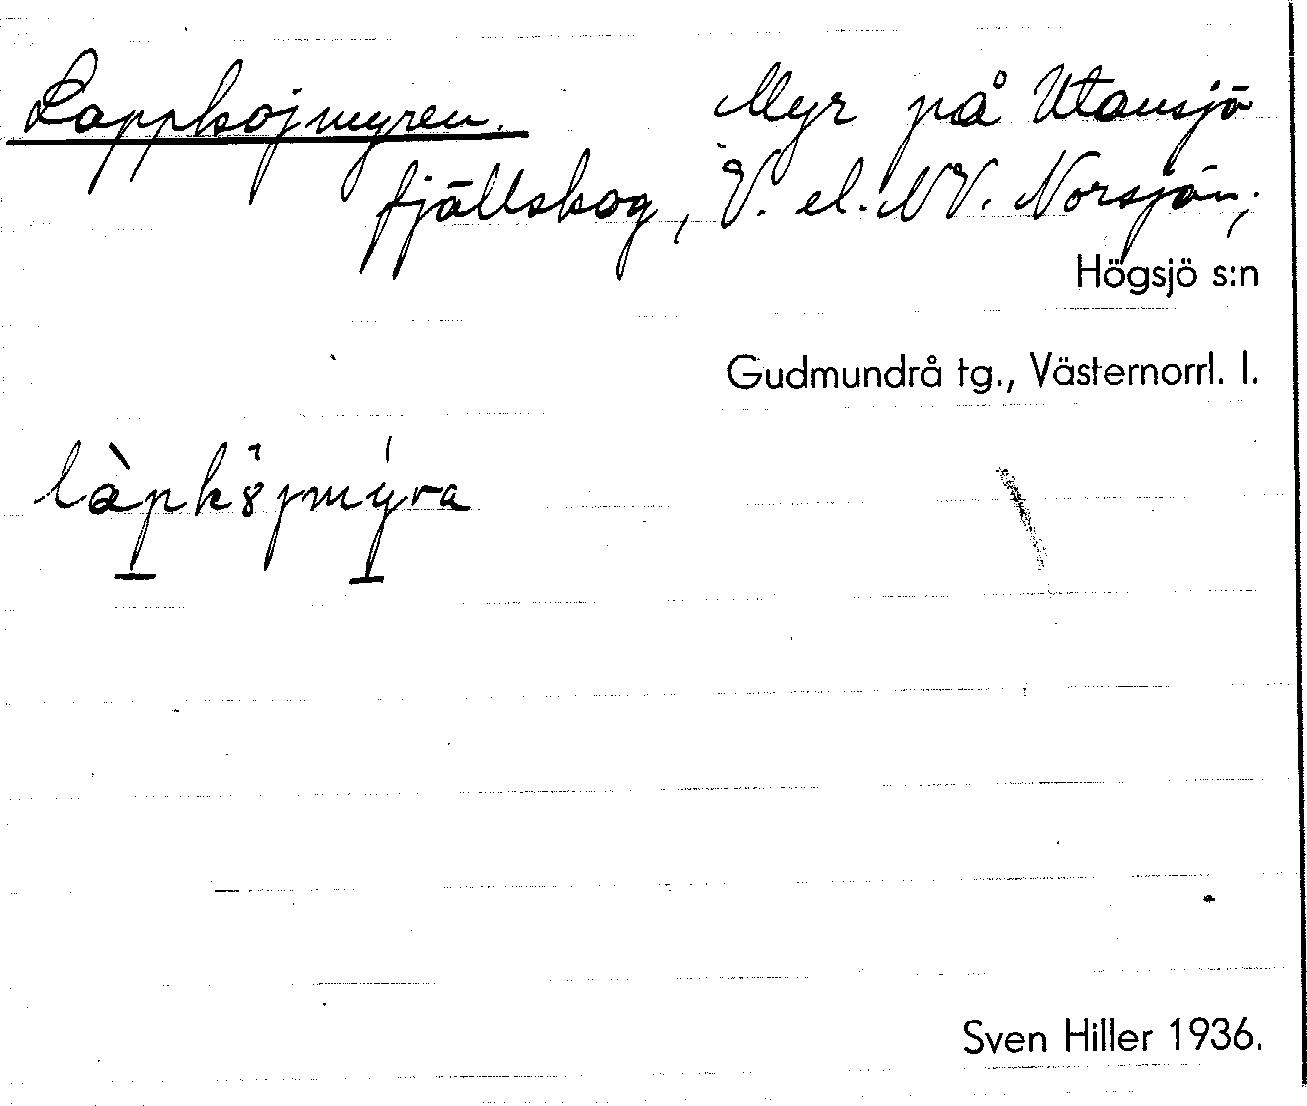 Lappkojmyren. Myr på Utansjö
fjällskog, V. el. NV. Norsjön;
Högsjö s:n
Gudmundrå tg., Västernorrl. l.
Sven Hiller 1936.